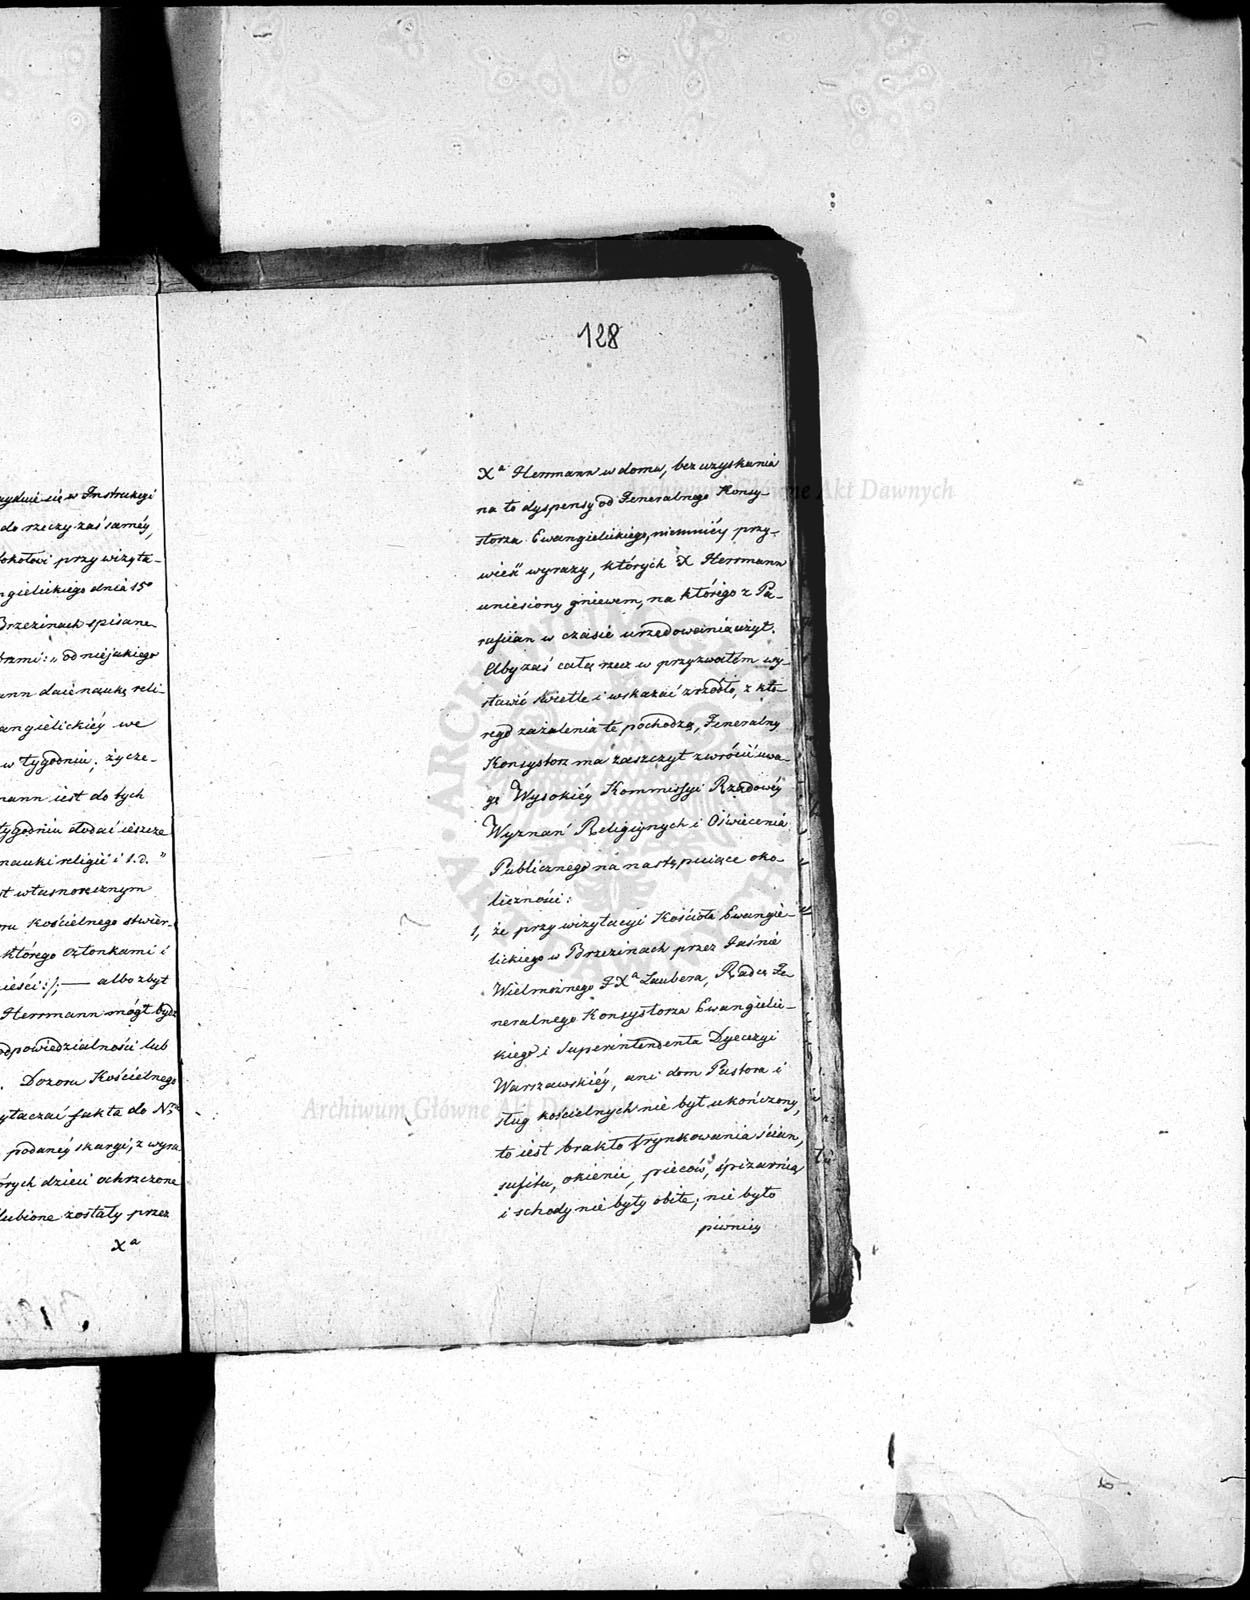 ayduie się w Instrukcyi
do rzeczy zaś saméy,
tokołowi przy wizyta-
ngielickiego dnia 15º
Brzezinach spisane
brzmi: „od niejakiego
ann daie naukę reli-
angielickiéy we
w tygodniu; życze-
mann iest do tych
tygodniu dodać ieszcze
nauki religii i t.d. "
st własnoręcznym
ru kościelnego stwier-
którego członkami i
ieści:/; — albo zbyt
Herrmann mógł bydź
odpowiedzialności lub
Dozoru Kościelnego
ytaczać fakta do
podanéy skargi, z wyra
órych dzieci ochrzczone
lubione zostały przez
Xª
128
Xª Herrmann w domu, bez uzyskania
na to dyspensy od Jeneralnego Konsy-
storza Ewangielickiego, niemniéy przy-
wieść wyrazy, których X Herrmann
uniesiony gniewem, na którego z Pa-
rafiian w czasie urzędowania użył.
Aby zaś całą rzecz w przyzwoitém wy-
stawić świetle i wskazać zrzódło, z któ-
rego zażalenia te pochodzą, Jeneralny
Konsystorz ma zaszczyt zwrócić uwa-
gę Wysokiéy Kommissyi Rządowéy
Wyznań Religiynych i Oświecenia
Publicznego na następuiące oko-
liczności:
1, że przy wizytacyi Kościoła Ewangie-
lickiego w Brzezinach przez Jaśnie
Wielmożnego JXª Laubera, Radcę Je-
neralnego Konsystorza Ewangielic-
kiego i Superintendenta Dyecezyi
Warszawskiéy, ani dom Pastora i
sług kościelnych nie był ukończony,
to iest brakło trynkowania ścian,
sufitu, okienic, pieców, śpizarnią
i schody nie były obite; nie było
piwnicy
Archiwum Główne Akt Dawnych
Archiwum Główne Akt Dawnych